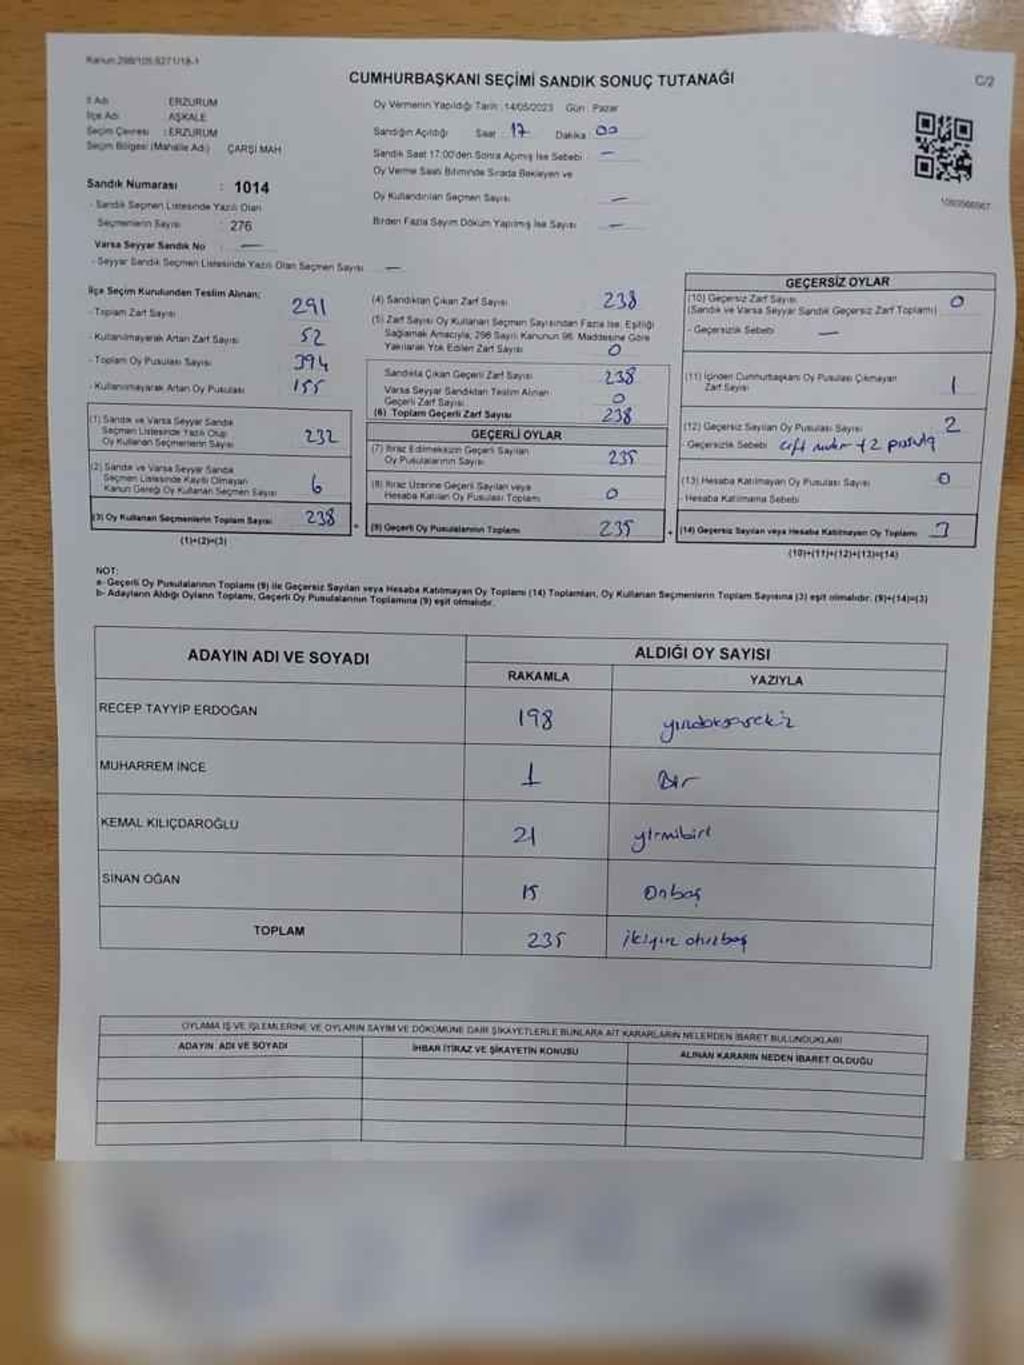 Kanun:298/105.6271/18-1
CUMHURBAŞKANI SEÇİMİ SANDIK SONUÇ TUTANAĞI
C/2
İl Adı ERZURUM
İlçe Adı AŞKALE
Seçim Çevresi : ERZURUM
Seçim Bölgesi (Mahalle Adı) ÇARŞI MAH
Sandık Numarası : 1014
- Sandık Seçmen Listesinde Yazılı Olan
Seçmenlerin Sayısı : 276
Varsa Seyyar Sandık No : —
- Seyyar Sandık Seçmen Listesinde Yazılı Olan Seçmen Sayısı —
Oy Vermenin Yapıldığı Tarih : 14/05/2023 Gün : Pazar
Sandığın Açıldığı Saat : 17 Dakika : 00
Sandık Saat 17:00'den Sonra Açılmış İse Sebebi : —
Oy Verme Saati Bitiminde Sırada Bekleyen ve
Oy Kullandırılan Seçmen Sayısı —
Birden Fazla Sayım Döküm Yapılmış İse Sayısı —
İlçe Seçim Kurulundan Teslim Alınan;
- Toplam Zarf Sayısı 291
- Kullanılmayarak Artan Zarf Sayısı 52
- Toplam Oy Pusulası Sayısı 394
- Kullanılmayarak Artan Oy Pusulası 155
(1) Sandık ve Varsa Seyyar Sandık
Seçmen Listesinde Yazılı Olup
Oy Kullanan Seçmenlerin Sayısı 232
(2) Sandık ve Varsa Seyyar Sandık
Seçmen Listesinde Kayıtlı Olmayan
Kanun Gereği Oy Kullanan Seçmen Sayısı 6
(3) Oy Kullanan Seçmenlerin Toplam Sayısı 238
(1)+(2)=(3)
(4) Sandıktan Çıkan Zarf Sayısı 238
(5) Zarf Sayısı Oy Kullanan Seçmen Sayısından Fazla İse, Eşitliği
Sağlamak Amacıyla, 298 Sayılı Kanunun 98. Maddesine Göre
Yakılarak Yok Edilen Zarf Sayısı 0
Sandıkta Çıkan Geçerli Zarf Sayısı 238
Varsa Seyyar Sandıktan Teslim Alınan
Geçerli Zarf Sayısı 0
(6) Toplam Geçerli Zarf Sayısı 238
GEÇERLİ OYLAR
(7) İtiraz Edilmeksizin Geçerli Sayılan
Oy Pusulalarının Sayısı 235
(8) İtiraz Üzerine Geçerli Sayılan veya
Hesaba Katılan Oy Pusulası Toplamı 0
(9) Geçerli Oy Pusulalarının Toplamı 235
GEÇERSİZ OYLAR
(10) Geçersiz Zarf Sayısı 0
(Sandık ve Varsa Seyyar Sandık Geçersiz Zarf Toplamı)
- Geçersizlik Sebebi —
(11) İçinden Cumhurbaşkanı Oy Pusulası Çıkmayan
Zarf Sayısı 1
(12) Geçersiz Sayılan Oy Pusulası Sayısı 2
- Geçersizlik Sebebi çift +2 pusula
(13) Hesaba Katılmayan Oy Pusulası Sayısı 0
- Hesaba Katılmama Sebebi
(14) Geçersiz Sayılan veya Hesaba Katılmayan Oy Toplamı 3
(10)+(11)+(12)+(13)=(14)
NOT:
a- Geçerli Oy Pusulalarının Toplamı (9) ile Geçersiz Sayılan veya Hesaba Katılmayan Oy Toplamı (14) Toplamları, Oy Kullanan Seçmenlerin Toplam Sayısına (3) eşit olmalıdır. (9)+(14)=(3)
b- Adayların Aldığı Oyların Toplamı, Geçerli Oy Pusulalarının Toplamına (9) eşit olmalıdır.
ADAYIN ADI VE SOYADI
ALDIĞI OY SAYISI
RAKAMLA YAZIYLA
RECEP TAYYİP ERDOĞAN 198 yüzdoksansekiz
MUHARREM İNCE 1 Bir
KEMAL KILIÇDAROĞLU 21 yirmibir
SİNAN OĞAN 15 Onbeş
TOPLAM 235 ikiyüz otuzbeş
OYLAMA İŞ VE İŞLEMLERİNE VE OYLARIN SAYIM VE DÖKÜMÜNE DAİR ŞİKAYETLERLE BUNLARA AİT KARARLARIN NELERDEN İBARET BULUNDUKLARI
ADAYIN ADI VE SOYADI İHBAR İTİRAZ VE ŞİKAYETİN KONUSU ALINAN KARARIN NEDEN İBARET OLDUĞU